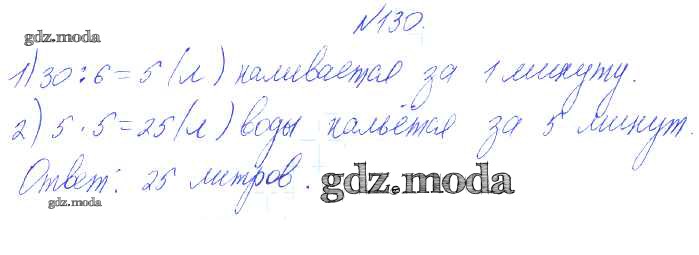 №130.
gdz.moda
1) 30:6=5 (л) наливается за 1 минуту.
2) 5·5=25 (л) воды нальётся за 5 минут.
Ответ: 25 литров.
gdz.moda
gdz.moda